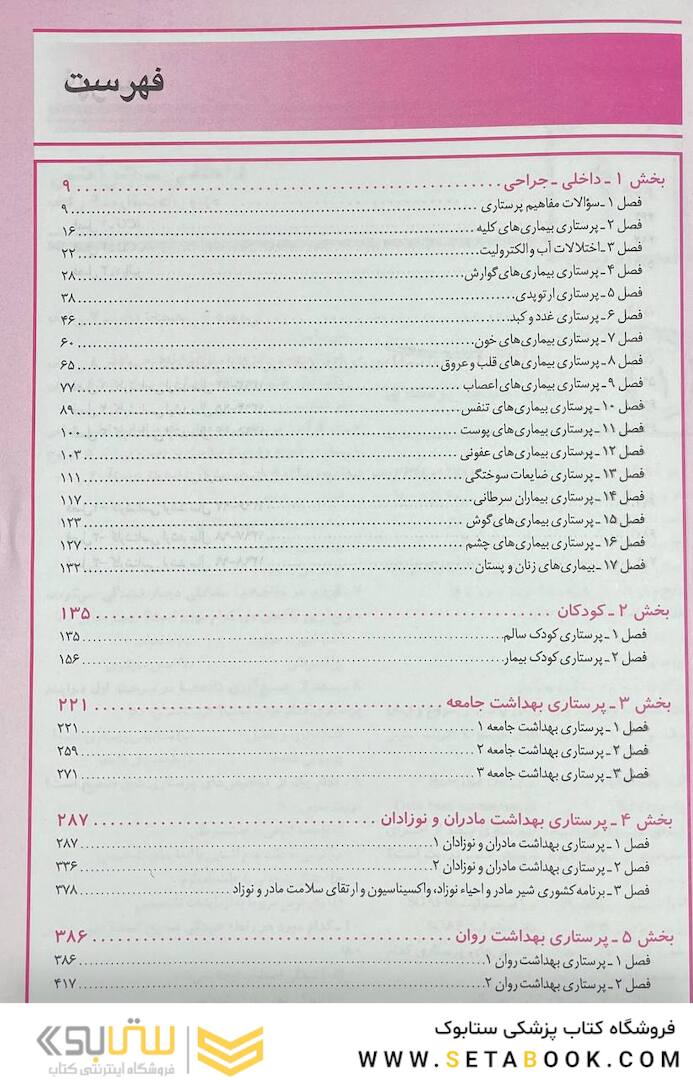 فهرست
بخش ۱ ـ داخلی ـ جراحی ۹
فصل ۱ ـ سؤالات مفاهیم پرستاری ۹
فصل ۲ ـ پرستاری بیماری‌های کلیه ۱۶
فصل ۳ ـ اختلالات آب و الکترولیت ۲۲
فصل ۴ ـ پرستاری بیماری‌های گوارش ۲۸
فصل ۵ ـ پرستاری ارتوپدی ۳۸
فصل ۶ ـ پرستاری غدد و کبد ۴۶
فصل ۷ ـ پرستاری بیماری‌های خون ۶۰
فصل ۸ ـ پرستاری بیماری‌های قلب و عروق ۶۵
فصل ۹ ـ پرستاری بیماری‌های اعصاب ۷۷
فصل ۱۰ ـ پرستاری بیماری‌های تنفس ۸۹
فصل ۱۱ ـ پرستاری بیماری‌های پوست ۱۰۰
فصل ۱۲ ـ پرستاری بیماری‌های عفونی ۱۰۳
فصل ۱۳ ـ پرستاری ضایعات سوختگی ۱۱۱
فصل ۱۴ ـ پرستاری بیماران سرطانی ۱۱۷
فصل ۱۵ ـ پرستاری بیماری‌های گوش ۱۲۳
فصل ۱۶ ـ پرستاری بیماری‌های چشم ۱۲۷
فصل ۱۷ ـ بیماری‌های زنان و پستان ۱۳۲
بخش ۲ ـ کودکان ۱۳۵
فصل ۱ ـ پرستاری کودک سالم ۱۳۵
فصل ۲ ـ پرستاری کودک بیمار ۱۵۶
بخش ۳ ـ پرستاری بهداشت جامعه ۲۲۱
فصل ۱ ـ پرستاری بهداشت جامعه ۱ ۲۲۱
فصل ۲ ـ پرستاری بهداشت جامعه ۲ ۲۵۹
فصل ۳ ـ پرستاری بهداشت جامعه ۳ ۲۷۱
بخش ۴ ـ پرستاری بهداشت مادران و نوزادان ۲۸۷
فصل ۱ ـ پرستاری بهداشت مادران و نوزادان ۱ ۲۸۷
فصل ۲ ـ پرستاری بهداشت مادران و نوزادان ۲ ۳۳۶
فصل ۳ ـ برنامه کشوری شیر مادر و احیاء نوزاد، واکسیناسیون و ارتقای سلامت مادر و نوزاد ۳۷۸
بخش ۵ ـ پرستاری بهداشت روان ۳۸۶
فصل ۱ ـ پرستاری بهداشت روان ۱ ۳۸۶
فصل ۲ ـ پرستاری بهداشت روان ۲ ۴۱۷
فروشگاه کتاب پزشکی ستابوک
WWW.SETABOOK.COM
ستابوک
فروشگاه اینترنتی کتاب